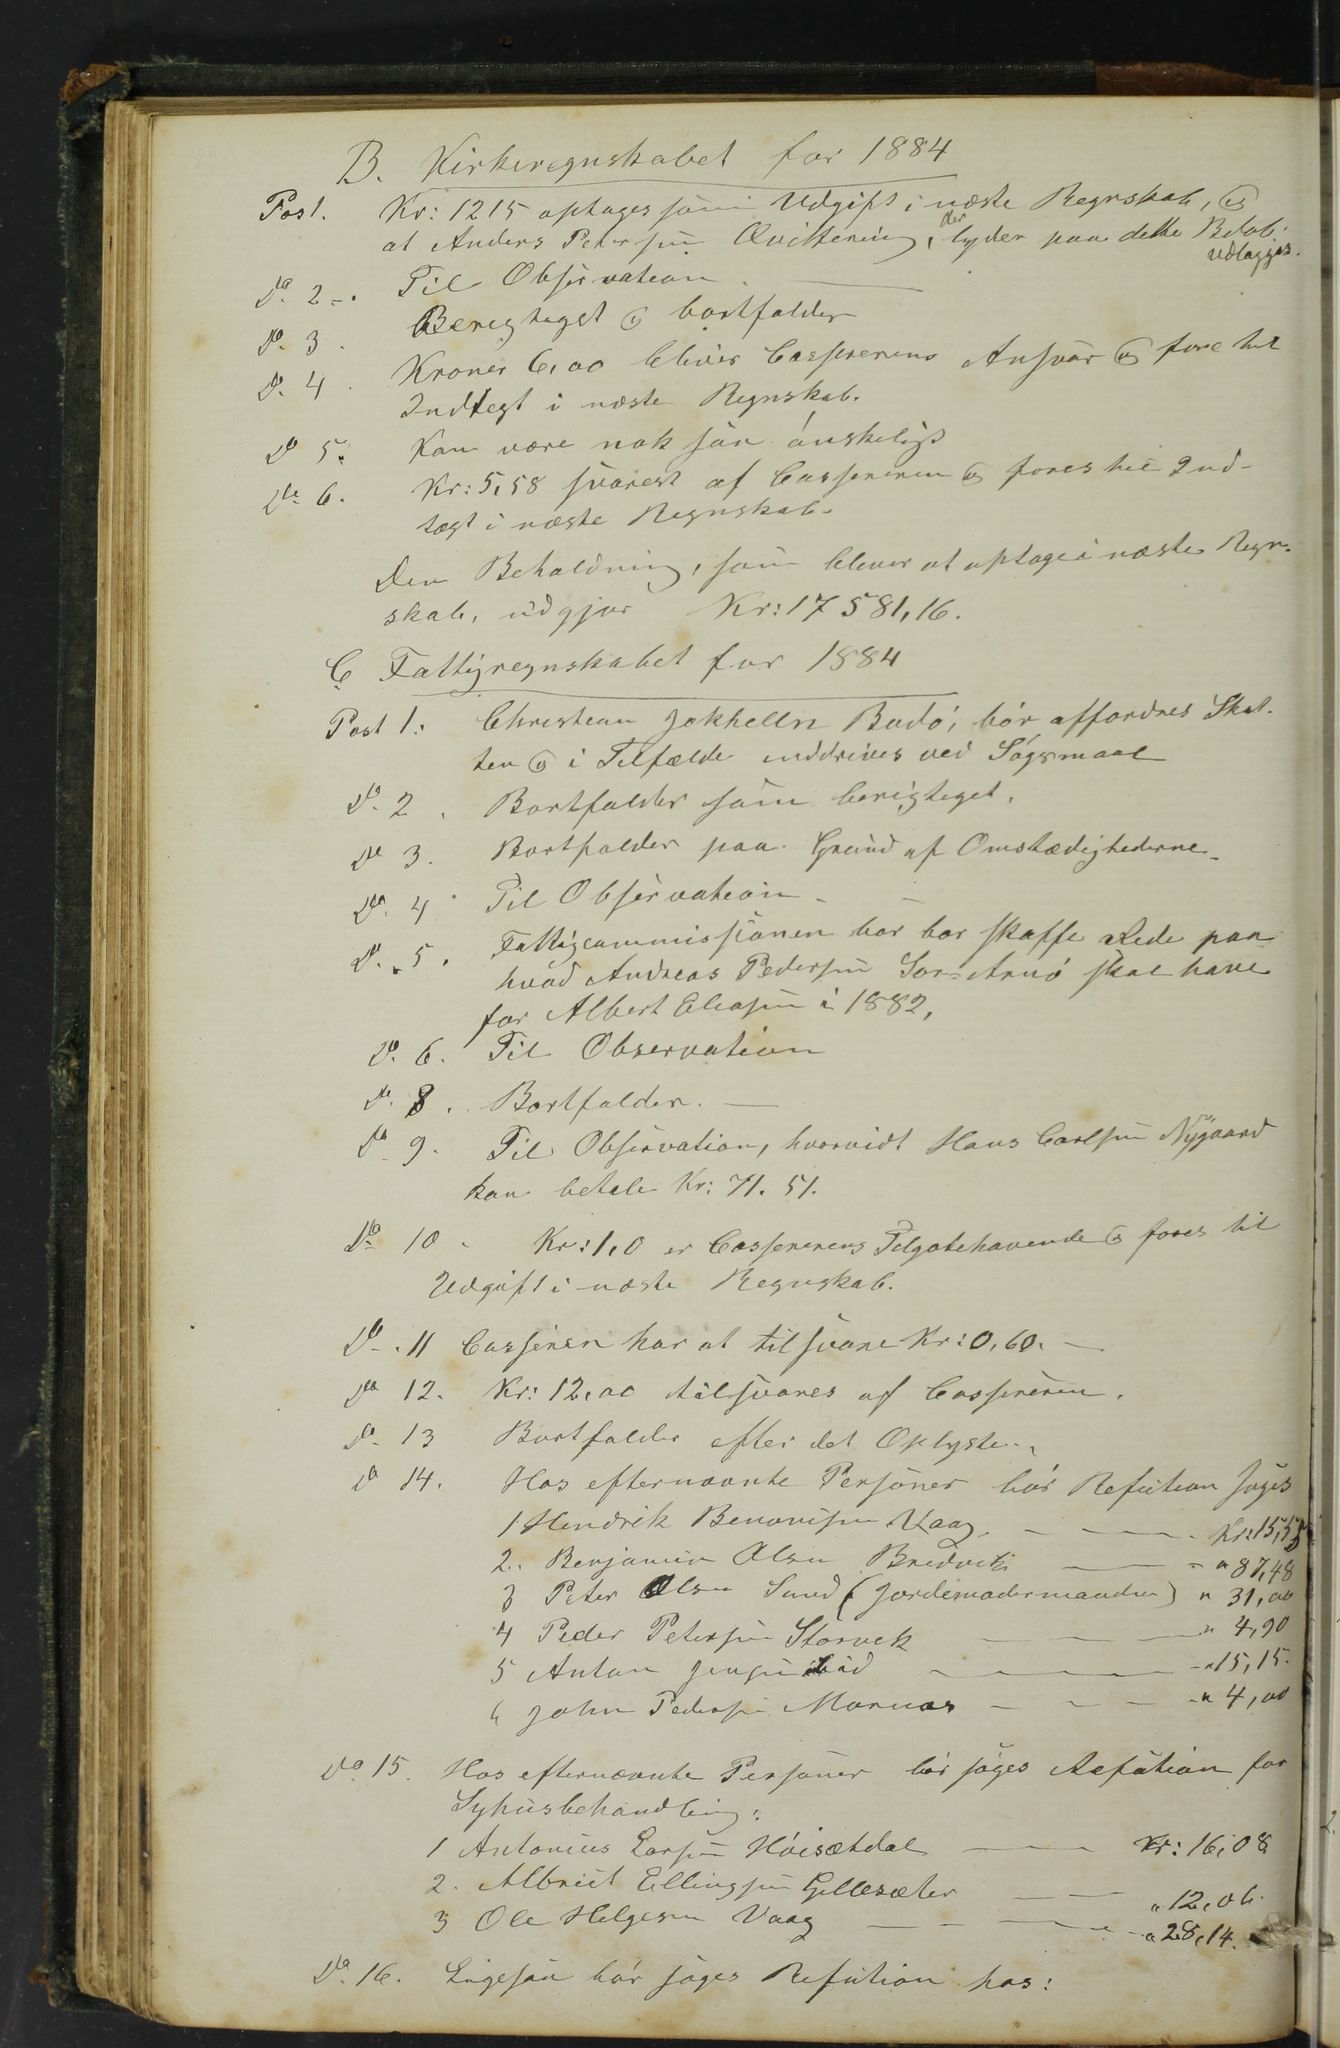 B. Kirkeregnskabet for 1884
Post 1. Kr: 1215 optages som Udgift i næste Regnskab, og
at Anders Petersen Qvittering, der lyder paa dette Beløb,
udlægges.
Do. 2. Til Observation.
Do. 3. Berigtiget og bortfalder
Do. 4. Kroner 6,00 bliver Cassererens Ansvar og føre til
Indtægt i næste Regnskab.
Do 5. Kan være nok saa ønskeligt
Do. 6. Kr: 5,58 svarest af Cassereren og føres til Ind-
tægt i næste Regnskab.
Den Beholdning, som bliver at optage i næste Regn-
skab, udgjør Kr: 17581,16.
C Fattigregnskabet for 1884
Post 1. Christian Jakhelln Bodø, bør affordres Skat-
ten og i Tilfælde inddrives ved Søgsmaal
Do. 2. Bortfalder som berigtiget.
Do 3. Bortfalder paa Grund af Omstædighederne.
Do. 4 Til Observation.
Do. 5. Fattigcommissionen bør skaffe Rede paa
hvad Andreas Pedersen Sør-Arnø skal have
for Albert Eliasen i 1882,
Do. 6. Til Observation
Do. 8. Bortfalder.
Do 9. Til Observation, hvorvidt Hans Carlsen Nygaard
kan betale Kr: 71.51.
Do 10. Kr: 1,0 er Cassererens Tilgodehavende og føres til
Udgift i næste Regnskab.
Do. 11 Casseren har at tilsvare Kr: 0,60.
Do 12. Kr: 12,00 tilsvares af Cassereren.
Do. 13 Bortfalder efter det Oplyste.
Do 14. Hos efternævnte Personer bør Refution søges
1 Hendrik Benonisen Vaag Kr: 15,
2. Benjamin Olsen Bredvik " 87,48
3 Peter Olsen Sund (Jordemodermanden) " 31,00
4 Peder Petersen Storvik " 4,90
5 Anton Jensen " 15,15.
6 John Pedersen " 4,00
Do. 15. Hos efternævnte Personer bør søges Refution for
Syhusbehandling:
1 Antonius Larsen Høisætdal Kr: 16,08
2. Albrikt Ellingsen Gillesæter " 12,06.
3 Ole Helgesen Vaag " 28,14.
Do. 16. Ligesaa bør søges Refution hos: